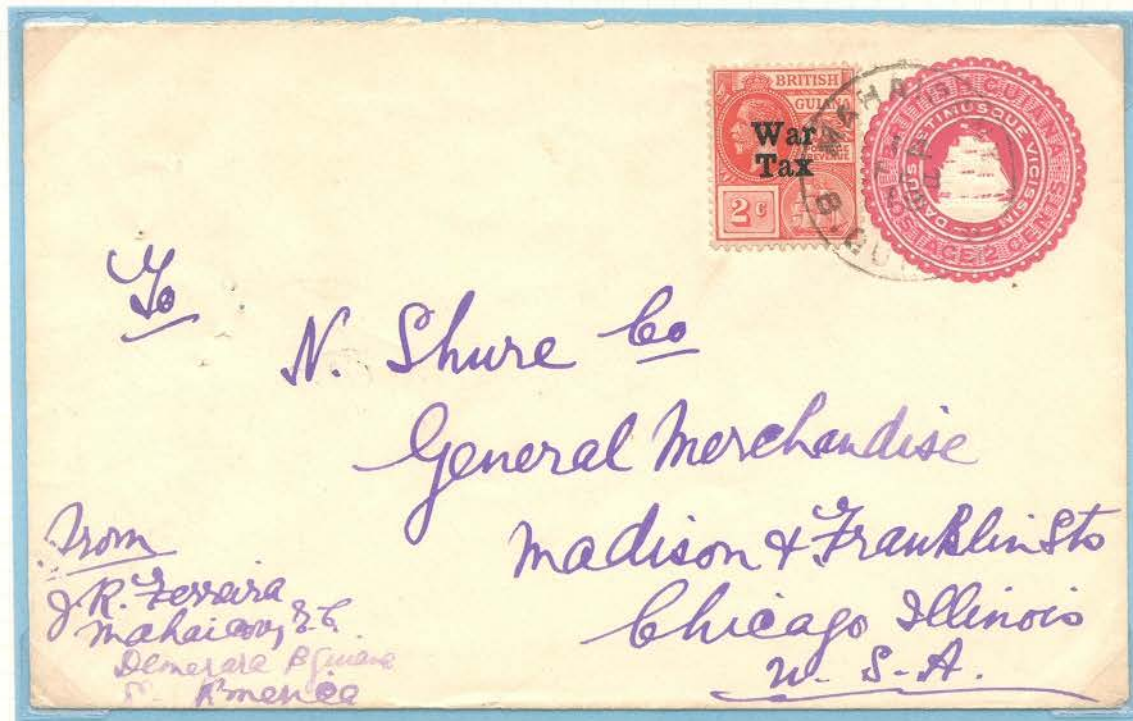 BRITISH
GUIANA
POSTAGE
REVENUE
War
Tax
2 c
DAMUS PETIMUSQUE VICISSIM
POSTAGE 2
To
N. Shure Co
General Merchandise
Madison & Franklin Sts
Chicago Illinois
U. S. A.
From
J R. Ferreira
Mahaicony, E. C.
Demerara B Guiana
S. America